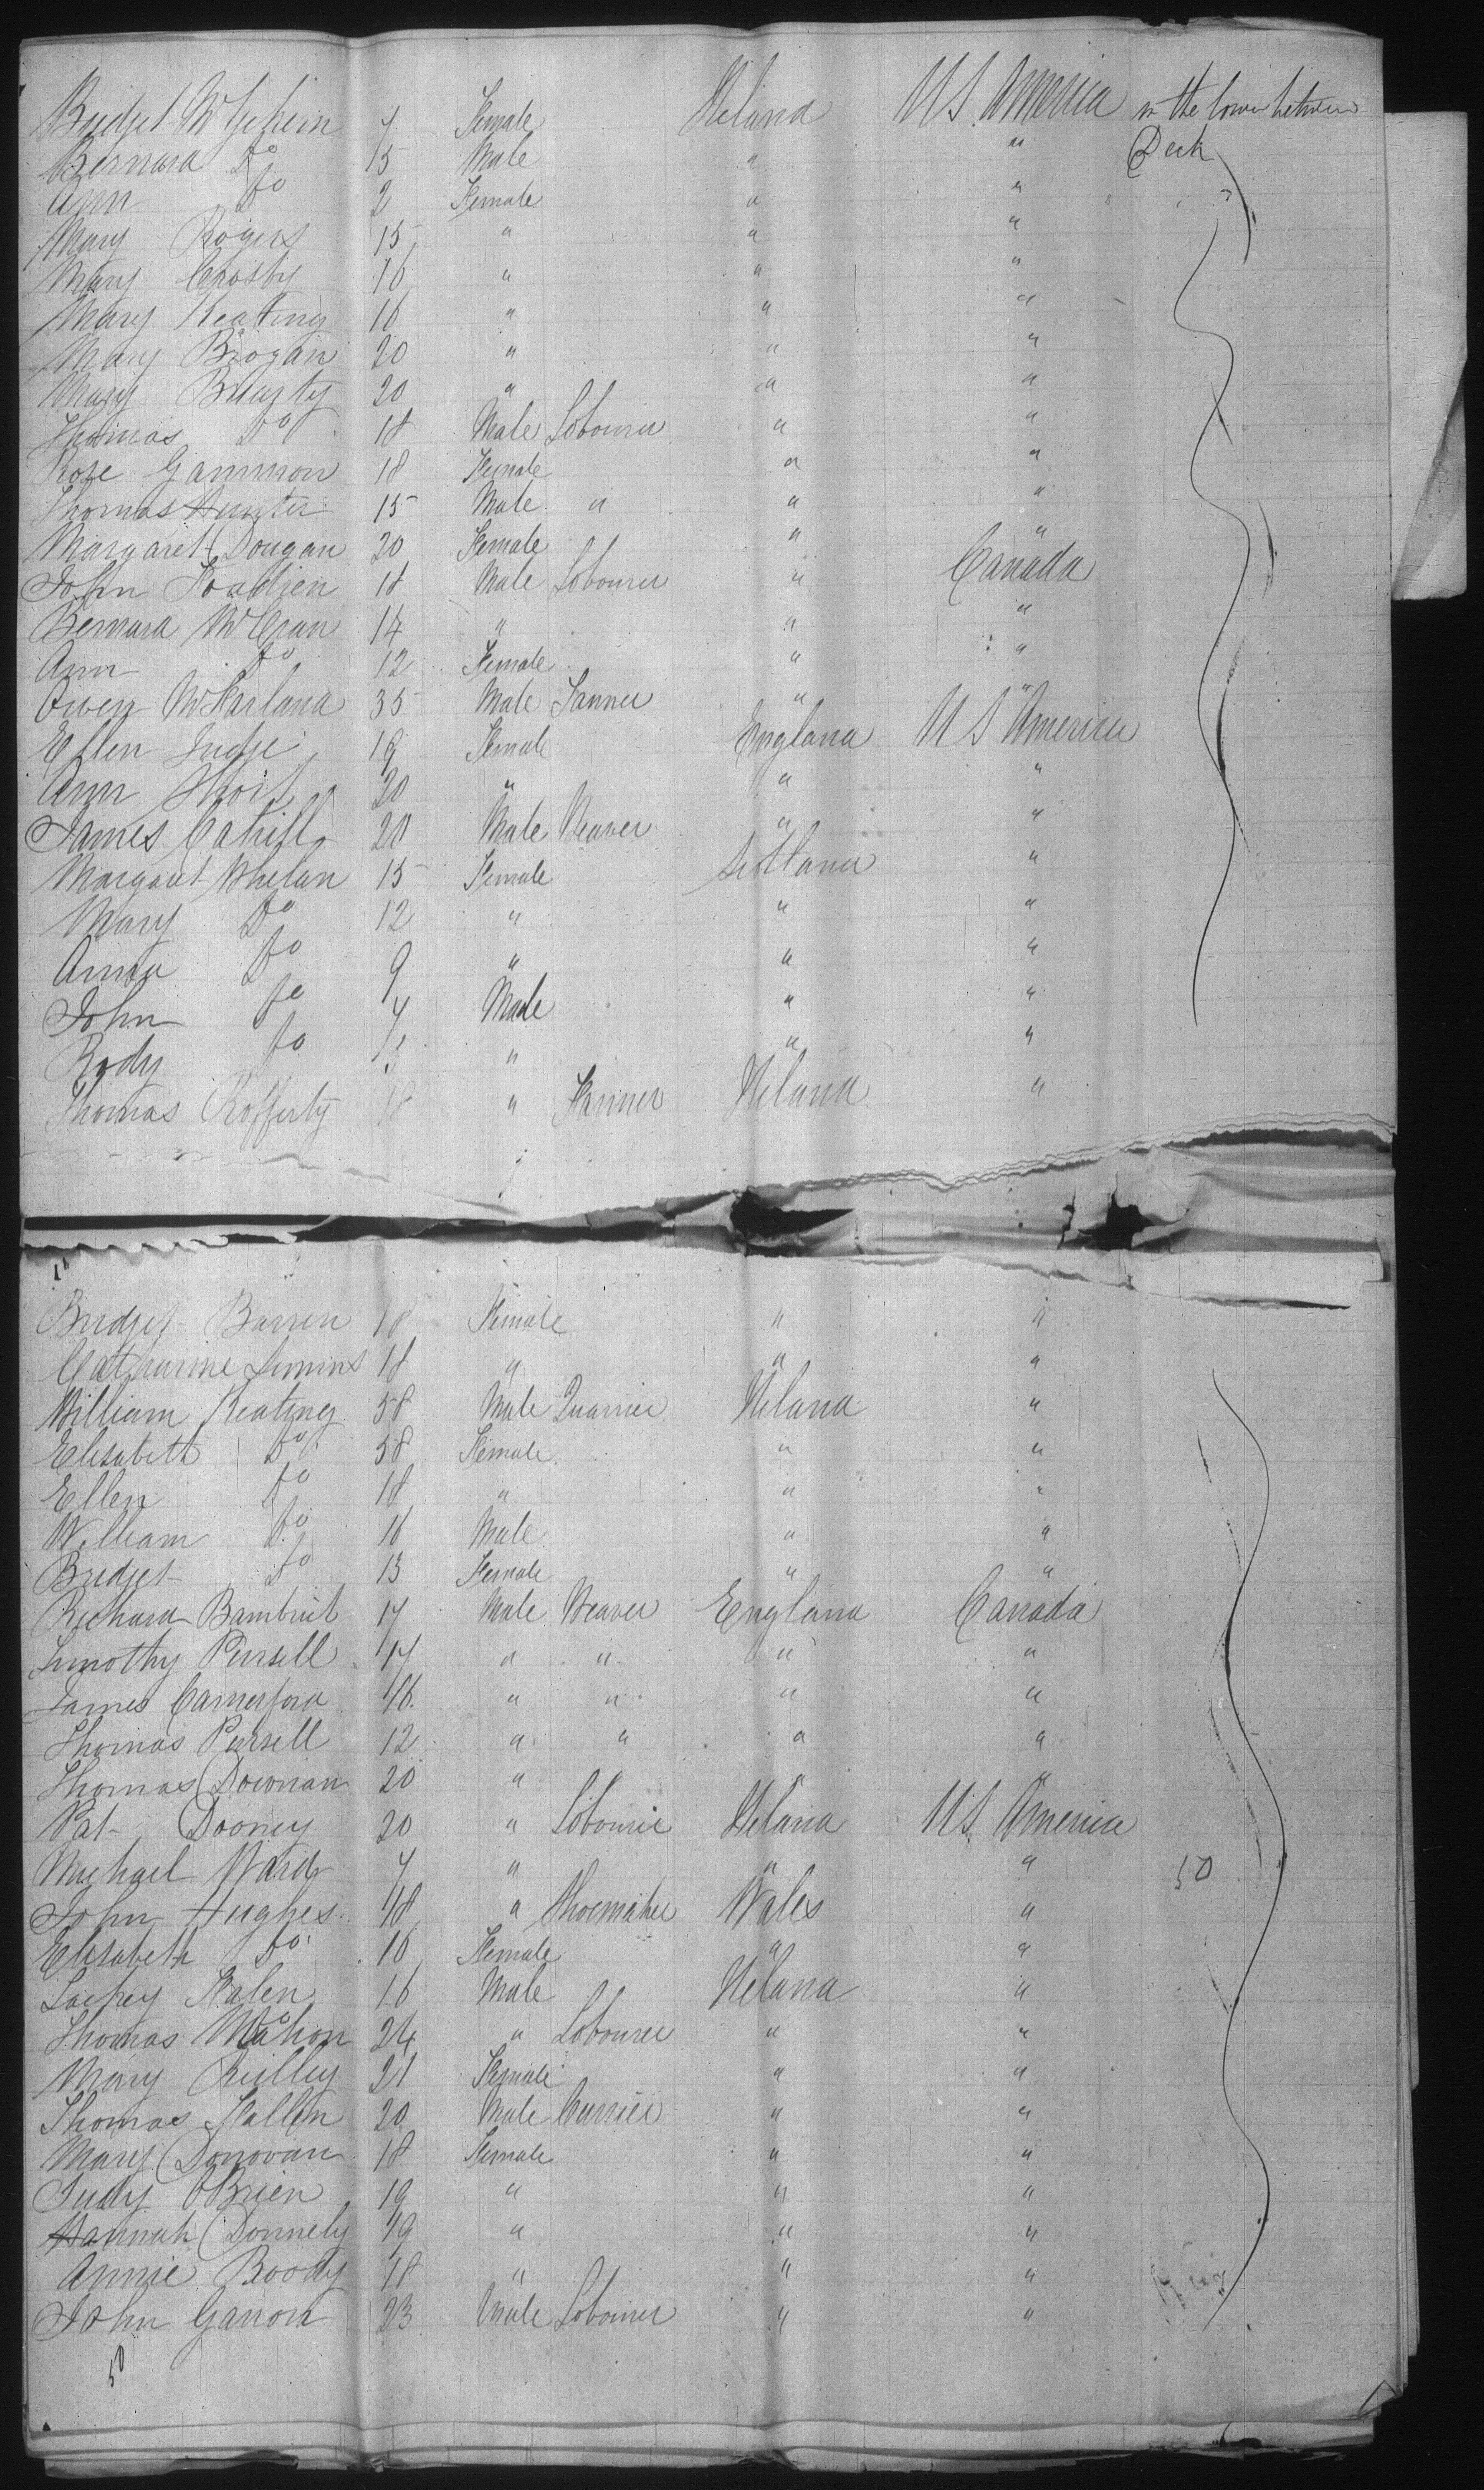 Bridget McGehein 7 Female Ireland U S America in the lower between
Bernard Do 15 Male " " Deck
Ann Do 2 Female " "
Mary Rogers 15 " " "
Mary Crosby 16 " " "
Mary Keating 16 " " "
Mary Brogan 20 " " "
Mary 20 " " "
Thomas Do 18 Male Labourer " "
Rose Gammon 18 Female " "
Thomas Hunter 15 Male " " "
Margaret Dougan 20 Female " "
John 18 Male Labourer " Canada
Bernard McCran 14 " " "
Ann Do 12 Female " "
Owen McFarland 35 Male Tanner " "
Ellen Judge 19 Female England U S America
Ann Short 20 " " "
James Cahill 20 Male Weaver " "
Margaret Whelan 15 Female Scotland "
Mary Do 12 " " "
Anna Do 9 " " "
John Do 7 Male " "
Rody Do " " "
Thomas Rofferty 18 " Farmer Ireland "
Bridget Barren 18 Female " "
Catharine Simins 18 " " "
William Keating 58 Male Quarrier Ireland "
Elisabeth Do 58 Female " "
Ellen Do 18 " " "
William Do 16 Male " "
Bridget Do 13 Female " "
Richard Bambrit 17 Male Weaver England Canada
Timothy Pursell 14 " " " "
James Camerford 16 " " " "
Thomas Pursell 12 " " " "
Thomas Downan 20 " " "
Pat Dooney 20 " Labourer Ireland U S America
Michael Ward 7 " " " 50
John Hughes 18 " Shoemaker Wales "
Elisabeth Do 16 Female " "
Lackey Kalen 16 Male Ireland "
Thomas McMahon 24 " Labourer " "
Mary Reilley 21 Female " "
Thomas Hallin 20 Male Currier " "
Mary Donovan 18 Female " "
Judy OBrien 19 " " "
Hannah Donnely 19 " " "
Annie Boody 18 " " "
John Ganon 23 Male Labourer " "
50